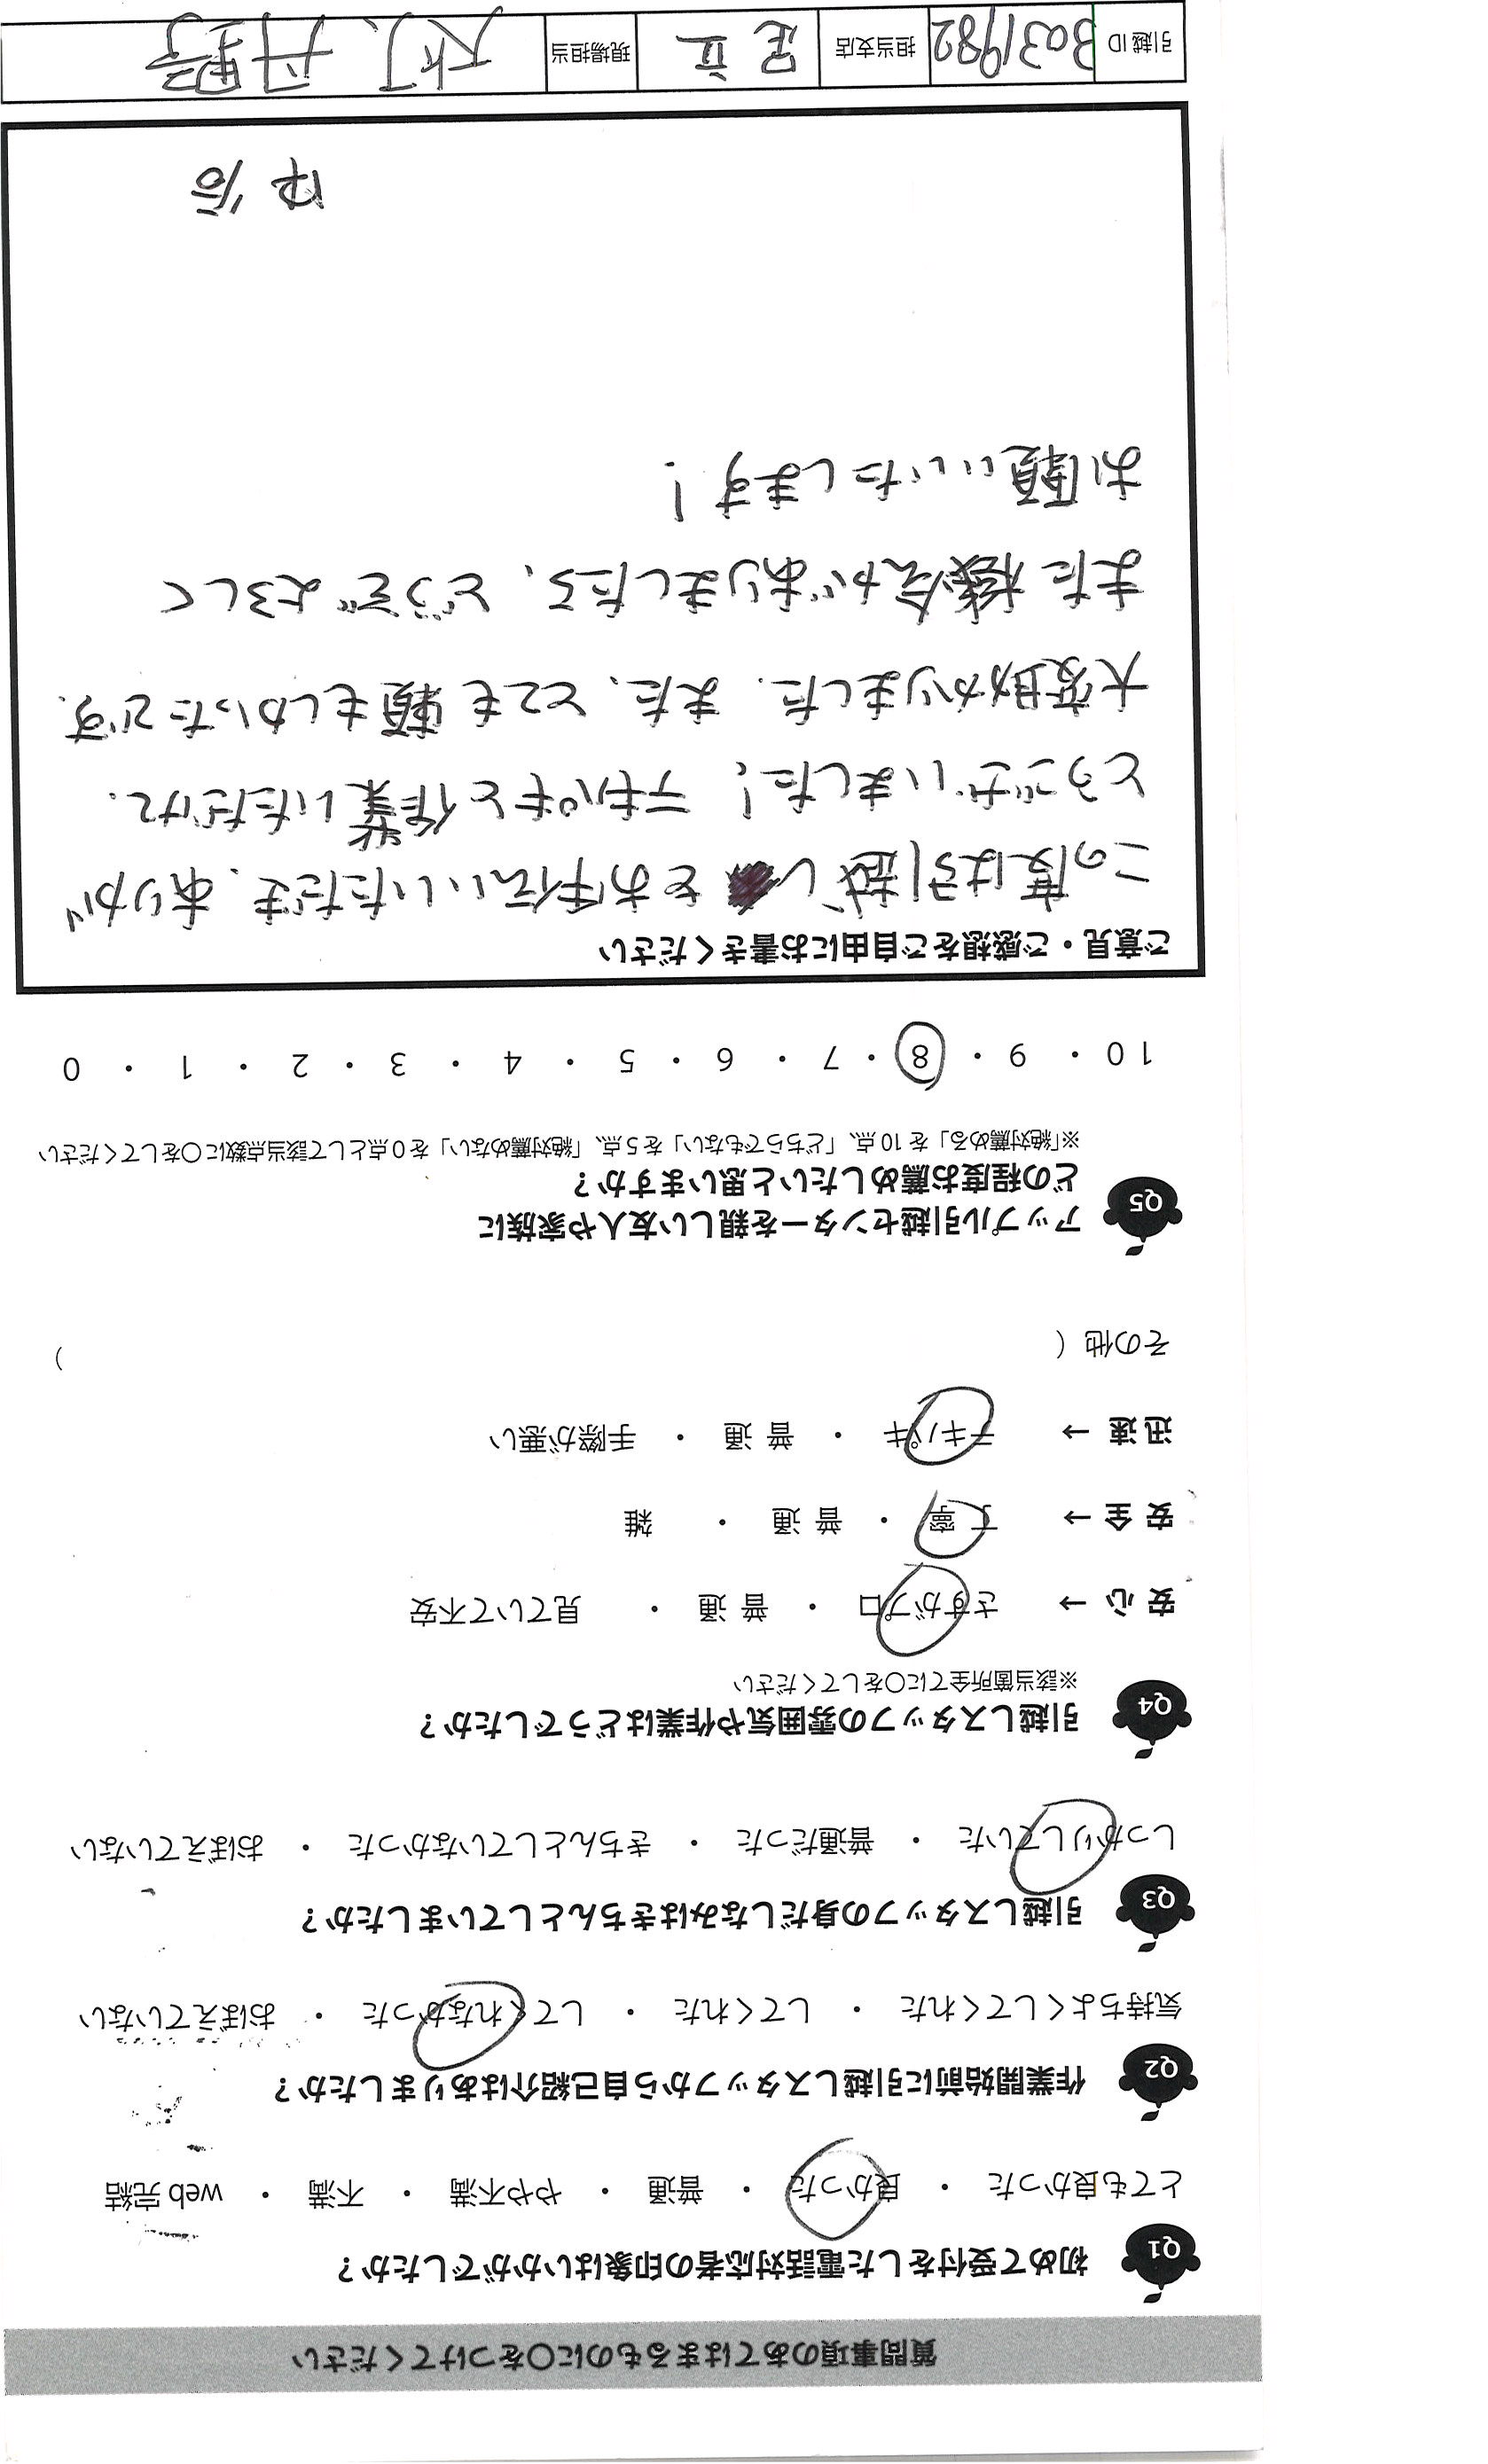 質問事項のあてはまるものに○をつけてください
Q1 初めて受付をした電話対応者の印象はいかがでしたか？
とても良かった ・ 良かった ・ 普通 ・ やや不満 ・ 不満 ・ web 完結
Q2 作業開始前に引越しスタッフから自己紹介はありましたか？
気持ちよくしてくれた ・ してくれた ・ してくれなかった ・ おぼえていない
Q3 引越しスタッフの身だしなみはきちんとしていましたか？
しっかりしていた ・ 普通だった ・ きちんとしていなかった ・ おぼえていない
Q4 引越しスタッフの雰囲気や作業はどうでしたか？
※該当箇所全てに○をしてください
安 心 → さすがプロ ・ 普 通 ・ 見ていて不安
安 全 → 丁 寧 ・ 普 通 ・ 雑
迅 速 → テキパキ ・ 普 通 ・ 手際が悪い
その他（ ）
Q5 アップル引越センターを親しい友人や家族に
どの程度お薦めしたいと思いますか？
※「絶対薦める」を 10 点、「どちらでもない」を 5 点、「絶対薦めない」を 0 点として該当点数に○をしてください
10 ・ 9 ・ 8 ・ 7 ・ 6 ・ 5 ・ 4 ・ 3 ・ 2 ・ 1 ・ 0
ご意見・ご感想をご自由にお書きください
この度は引越し をお手伝いいただき、ありが
とうございました！ テキパキと作業いただけて、
大変助かりました。また、とても頼もしかったです。
また機会がありましたら、どうぞよろしく
お願いいたします！
引越 ID B031982 担当支店 足立 現場担当 丹野